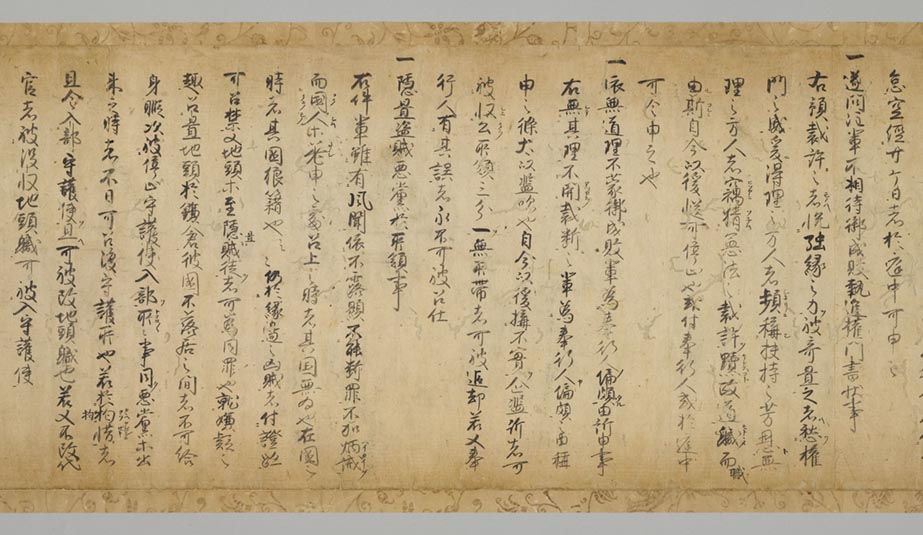 怠空經廿ケ日者於庭中可申之
一遂問注輩不相待御成敗執進權門書状事
右預裁許之者悦強縁之力被奇置之者愁權
門之威爰得理之方人者頻稱扶持之芳恩無
理之方人者竊猜憲法之裁許黷政道職而
由斯自今以後慥可停止也或付奉行人或於庭中
可令申之也
一依無道理不蒙御成敗輩為奉行人偏頗由訴申事
右無其理不関裁断之輩為奉行人偏頗之由構
申之條太以濫吹也自今以後搆不實企濫訴者可
被収公所領三分一無所帯者可被追却若又奉
行人有其誤者永不可被召仕
一隠置盗賊悪黨於所領事
右件輩雖有風聞依不露顕不能断罪不加炳誡
而國人等差申之處召上之時者其国無為也在國之
時者其國狼籍也云々仍於縁邊之凶賊者付證跡
可召禁又地頭等至隠賊徒者可為同罪也就嫌疑之
趣召置地頭於鎌倉彼國不落居之間者不可給
身暇次被停止守護使入部所々事同悪黨等出
来之時者不日可召渡守護所也若於拘惜者
且令入部守護使且可被改地頭職也若又不改代
官者被没収地頭職可被入守護使